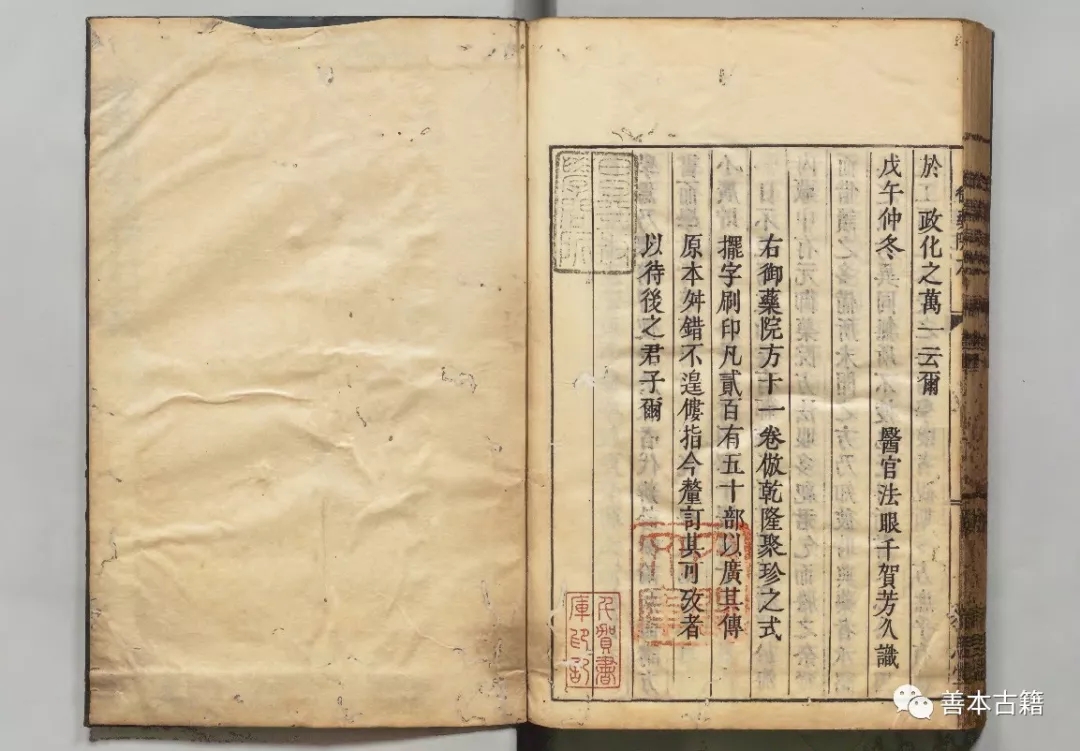 於 政化之萬一云爾
戊午仲冬 醫官法眼千賀芳久識
右御藥院方十一卷倣乾隆聚珍之式
擺字刷印凡貳百有五十部以廣其傳
原本舛錯不遑僂指今釐訂其可攷者
以待後之君子爾
千賀書
庫印記
善本古籍